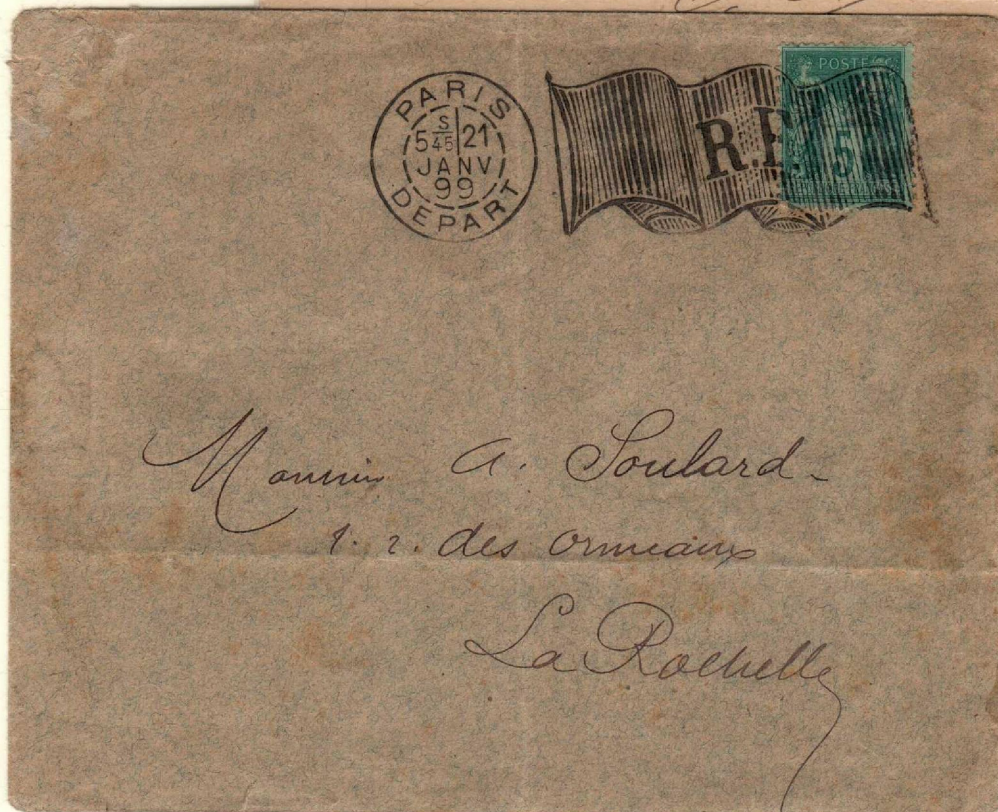 PARIS
S
5 45 21
JANV
99
DEPART
R.F.
POSTE
5
Monsieur A. Soulard
1. r. des Ormeaux
La Rochelle